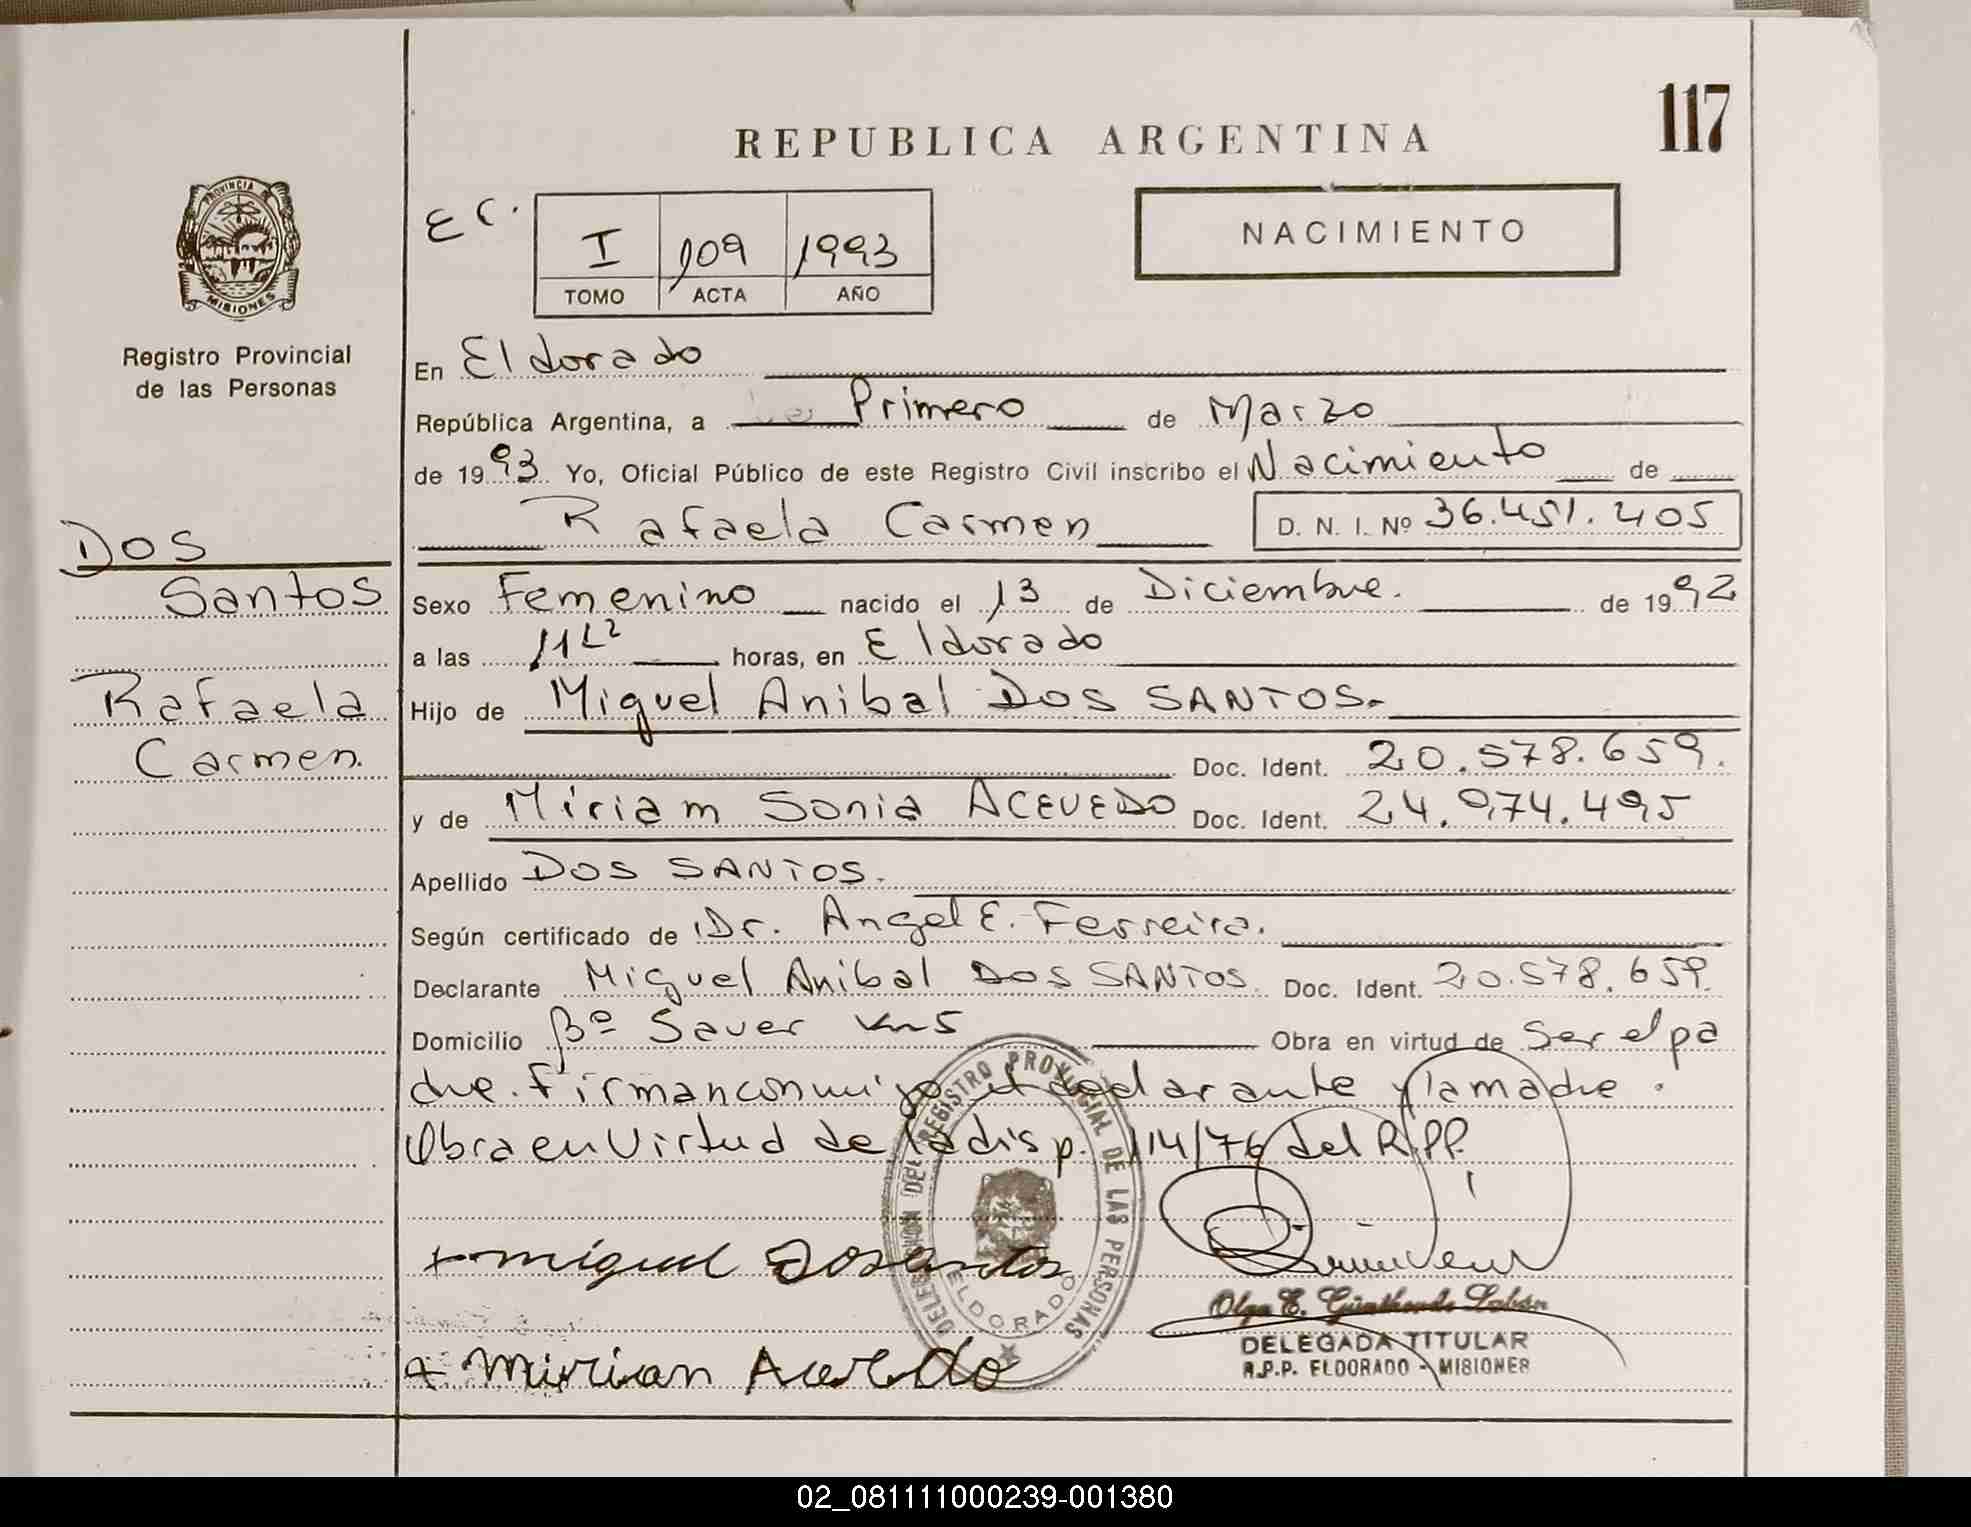 117
REPUBLICA ARGENTINA
PROVINCIA
MISIONES
Registro Provincial
de las Personas
EC.
I 109 1993
TOMO ACTA AÑO
NACIMIENTO
En Eldorado
República Argentina, a Primero de Marzo
de 1993. Yo, Oficial Público de este Registro Civil inscribo el Nacimiento de
Rafaela Carmen D. N. I. Nº 36.451.405
Dos
Santos
Rafaela
Carmen.
Sexo Femenino nacido el 13 de Diciembre. de 1992
a las 11 horas, en Eldorado
Hijo de Miguel Anibal DOS SANTOS.-
Doc. Ident. 20.578.659.
y de Miriam Sonia ACEVEDO Doc. Ident. 24.974.495
Apellido DOS SANTOS.
Según certificado de Dr. Angel E. Ferreira.
Declarante Miguel Anibal DOS SANTOS. Doc. Ident. 20.578.659.
Domicilio Bº Sauer Km 5 Obra en virtud de Ser el pa
dre. Firman conmigo el declarante y la madre.
Obra en Virtud de la disp. 114/76 del R.P.P.
DELEGACION DEL REGISTRO PROVINCIAL DE LAS PERSONAS
ELDORADO
+ miguel Dosantos
Olga E.
DELEGADA TITULAR
R.P.P. ELDORADO - MISIONES
+ Mirian Acevedo
02_081111000239-001380